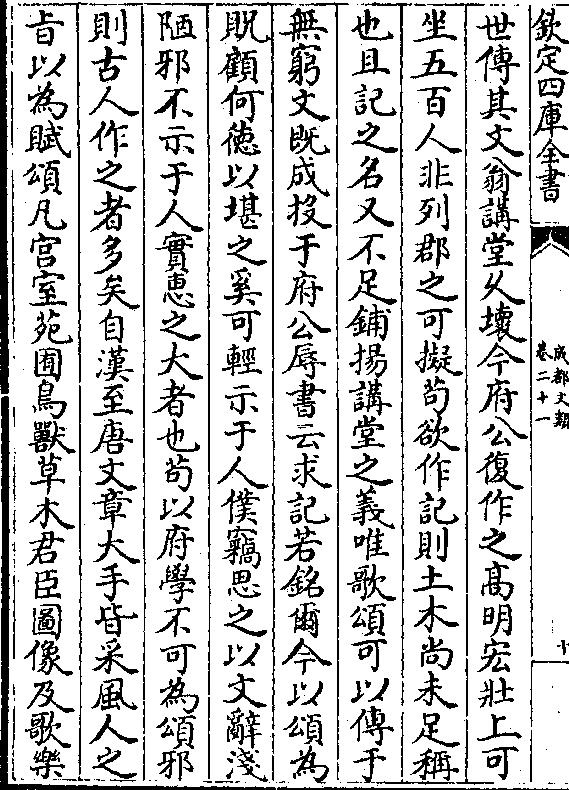 欽定四庫全書
成都文類
卷二十一
十
世傳其文翁講堂乆壊今府公復作之髙明宏壯上可
坐五百人非列郡之可擬茍欲作記則土木尚未足稱
也且記之名又不足鋪揚講堂之義唯歌頌可以傳于
無窮文既成投于府公辱書云求記若銘爾今以頌為
貺顧何徳以堪之奚可輕示于人僕竊思之以文辭淺
陋邪不示于人實惠之大者也茍以府學不可為頌邪
則古人作之者多矣自漢至唐文章大手皆采風人之
㫖以為賦頌凡宫室苑囿鳥獸草木君臣圖像及歌樂